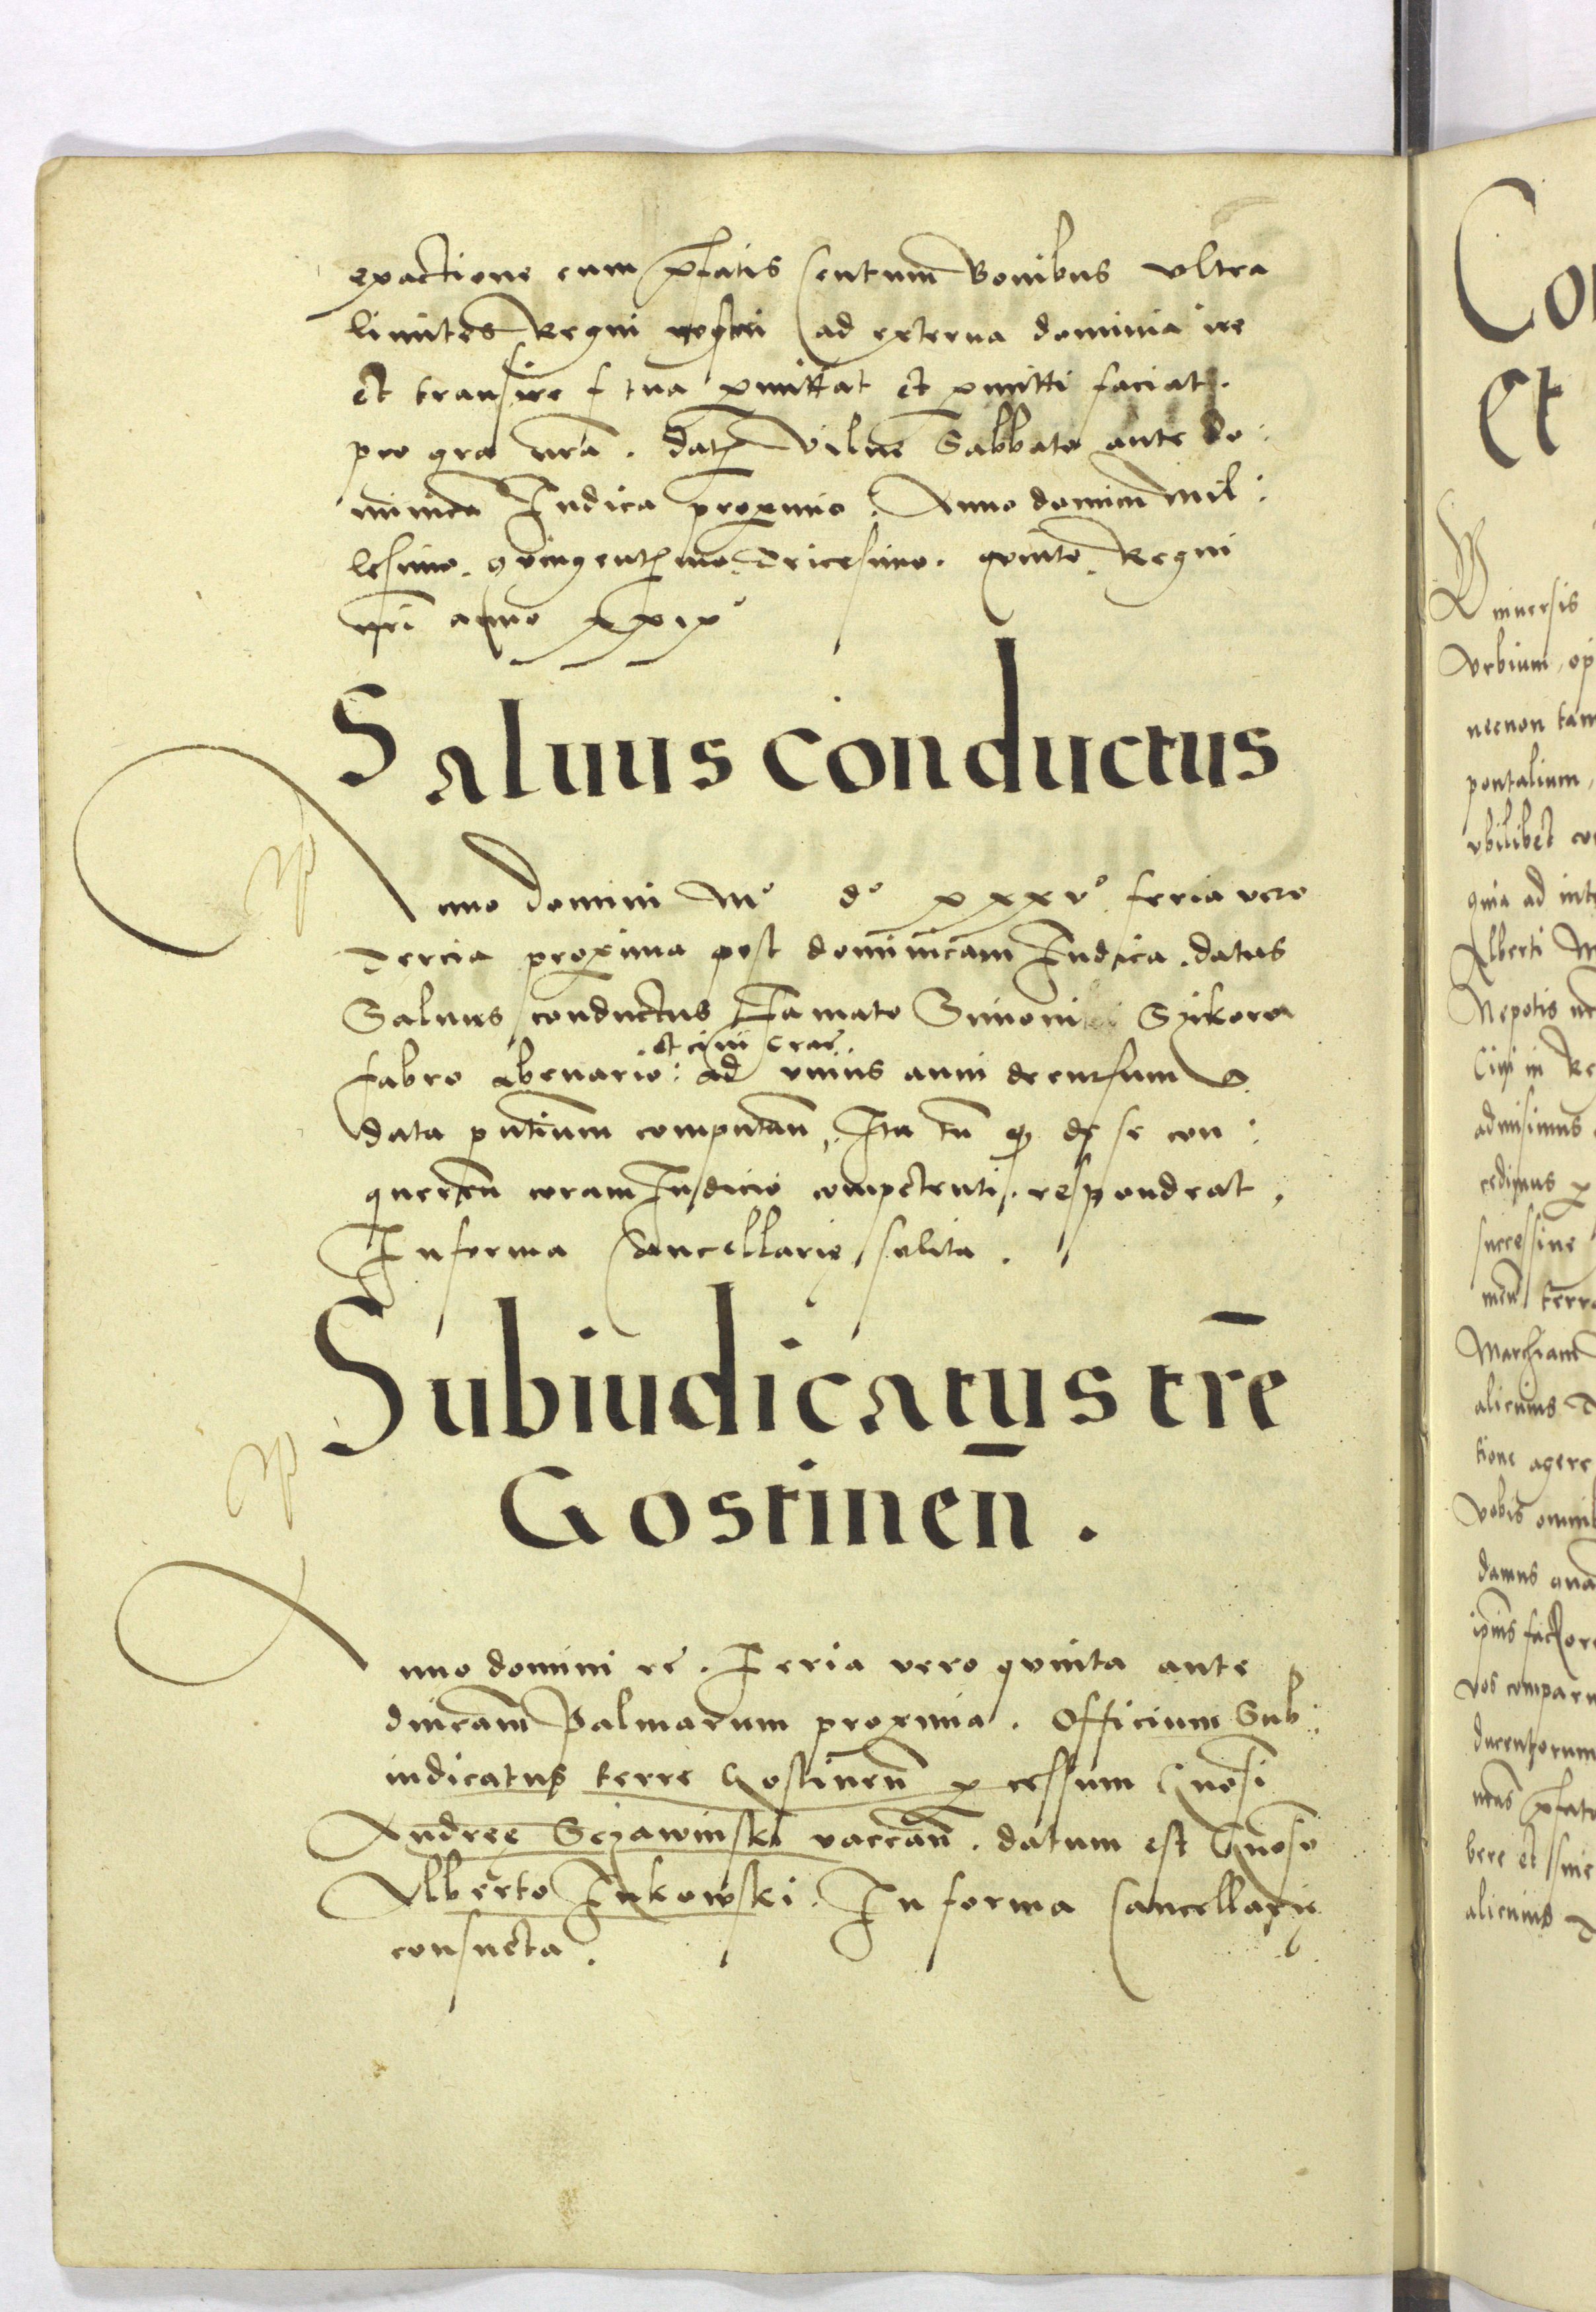 exactione cum p̄fatis centum Bonibus vltra
limites Regni nostri ad externa dominia ire
et transire f tua pmittat et pmitti faciat.
pro gra nrā. Dat Vilne Sabbato ante do:
minicā Iudica proximo. Anno domini mil:
lesimo. quingentmo. Tricesimo. quinto. Regni
nri anno xxix°
Saluus conductus
Anno Domini M° d° xxxv° feria vero
Tercia proxima post dominicam Iudica. datus
Saluus conductus Famato Simoni Sÿkora
et ciui crac̄
fabro abenario: ad vnius anni decursum a
data pntium computan̄, Ita tn̄ q de se con:
queren̄ coram Iudicio competenti. respondeat,
In forma Cancellarie solita.
Subiudicatus tr̄e
Gostinen̄.
Anno domini re. Feria vero quinta ante
dnicam Palmarum proxima. Officium Sub:
iudicatus terre Gostinen̄ p cessum Gnosi
Andree Scÿawinski vaccan̄. datum est Gnoso
Alberto Zukowski. In forma Cancellarie
consueta.
Co
Et
Vniuersis
Vrbium, op
necnon tam
pontalium,
vbilibet co
quia ad inte
Alberti M
Nepotis
Ciui in Re
admisimus
cedimus p
successiue
men̄ terra
Marchiam
alicuius
tione agere
vobis omnib
damus
ipius factore
vos comparu
ducentorum
p̄fato
bere et siue
alicuius